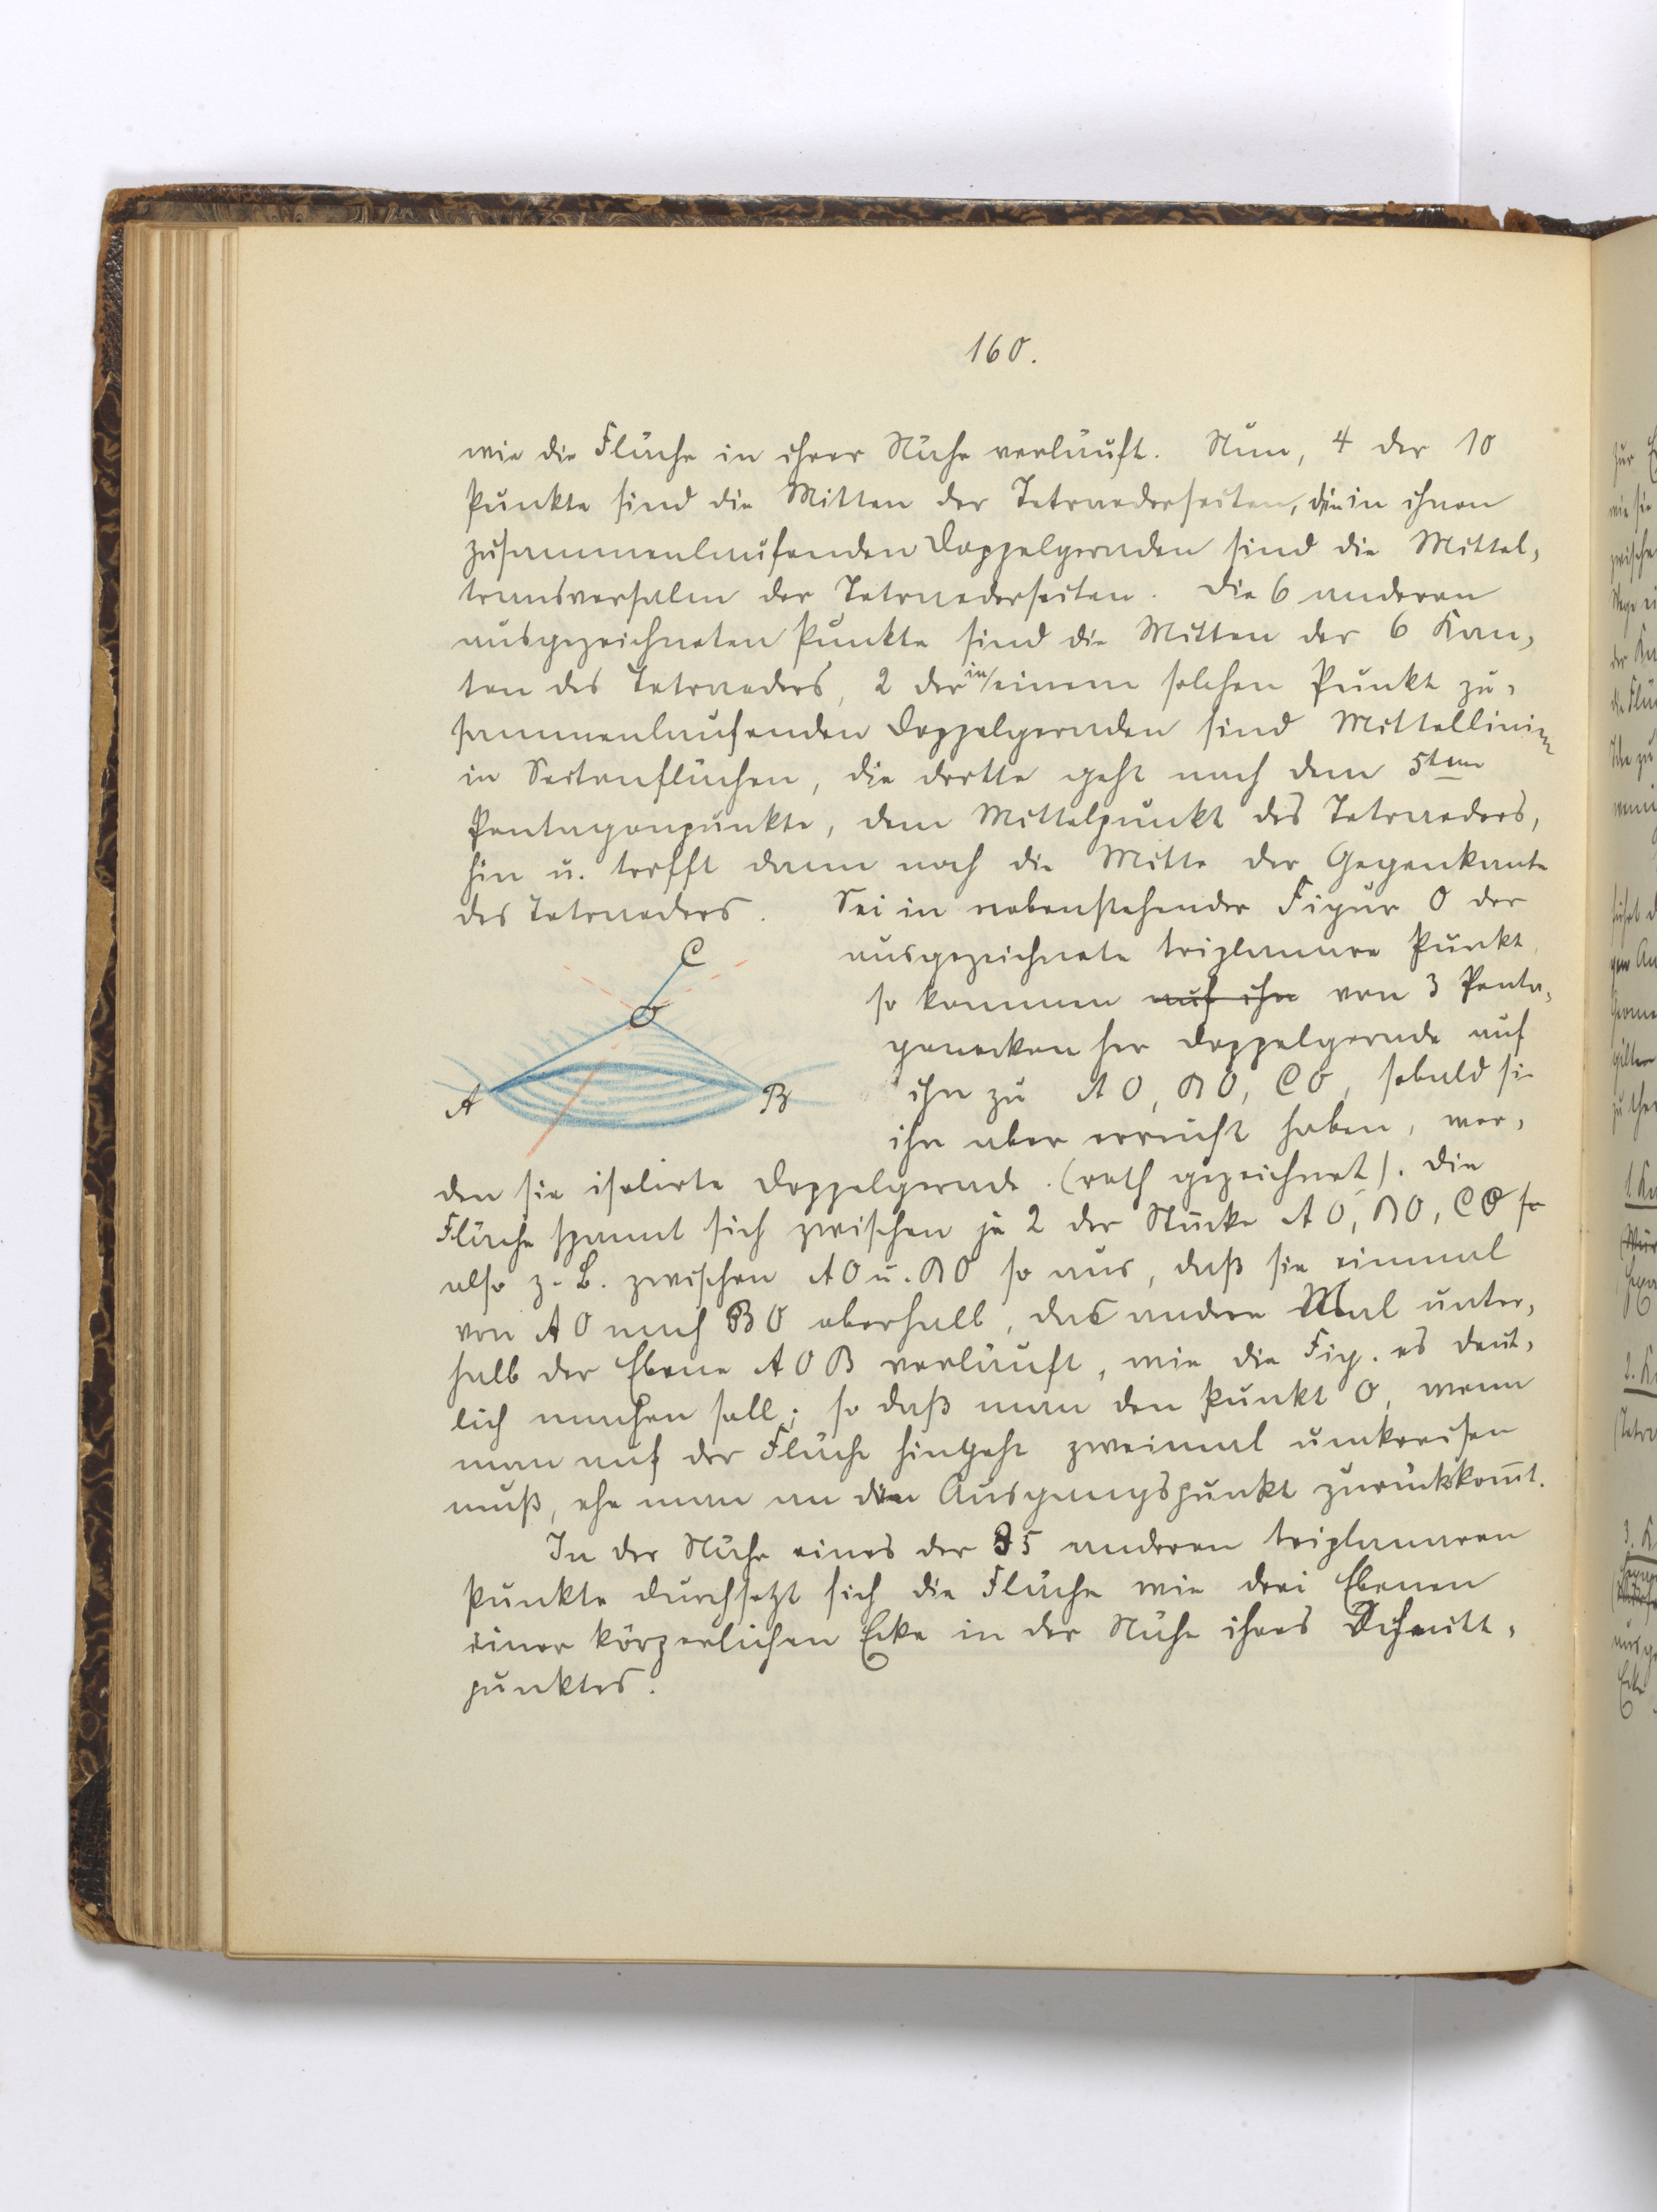 160.
wie die Fläche in ihrer Nähe verläuft. Nun, 4 der 10
Punkte sind die Mitten der Tetraederseiten, die in ihnen
zusammenlaufenden Doppelgeraden sind die Mittel-
transversalen der Tetraederseiten. Die 6 anderen
ausgezeichneten Punkte sind die Mitten der 6 Kan-
ten des Tetraeders, 2 der in einem solchen Punkt zu-
sammenlaufenden Doppelgeraden sind Mittellinien
in Seitenflächen, die dritte geht nach dem 5ten
Pentagonpunkte, dem Mittelpunkt des Tetraeders,
hin u. trifft dann noch die Mitte der Gegenkante
des Tetraeders. Sei in nebenstehender Figur O der
ausgezeichnete triplanare Punkt
so kommen auf ihn von 3 Penta-
gonecken her Doppelgerade auf
ihn zu AO, BO, CO, sobald sie
ihn aber erreicht haben, wer-
C
O
A
B
den sie isolirte Doppelgerade. (roth gezeichnet). Die
Fläche spannt sich zwischen je 2 der Stücke AO, BO, CO so
also z. B. zwischen AO u. BO so aus, daß sie einmal
von AO nach BO oberhalb, das andere Mal unter-
halb der Ebene AOB verläuft, wie die Fig. es deut-
lich machen soll; so daß man den Punkt O, wenn
man auf der Fläche hingeht zweimal umkreisen
muß, ehe man an den Ausgangspunkt zurückkom̅t.
In der Nähe eines der 35 anderen triplanaren
Punkte durchsetzt sich die Fläche wie drei Ebenen
einer körperlichen Ecke in der Nähe ihres Schnitt-
punktes.